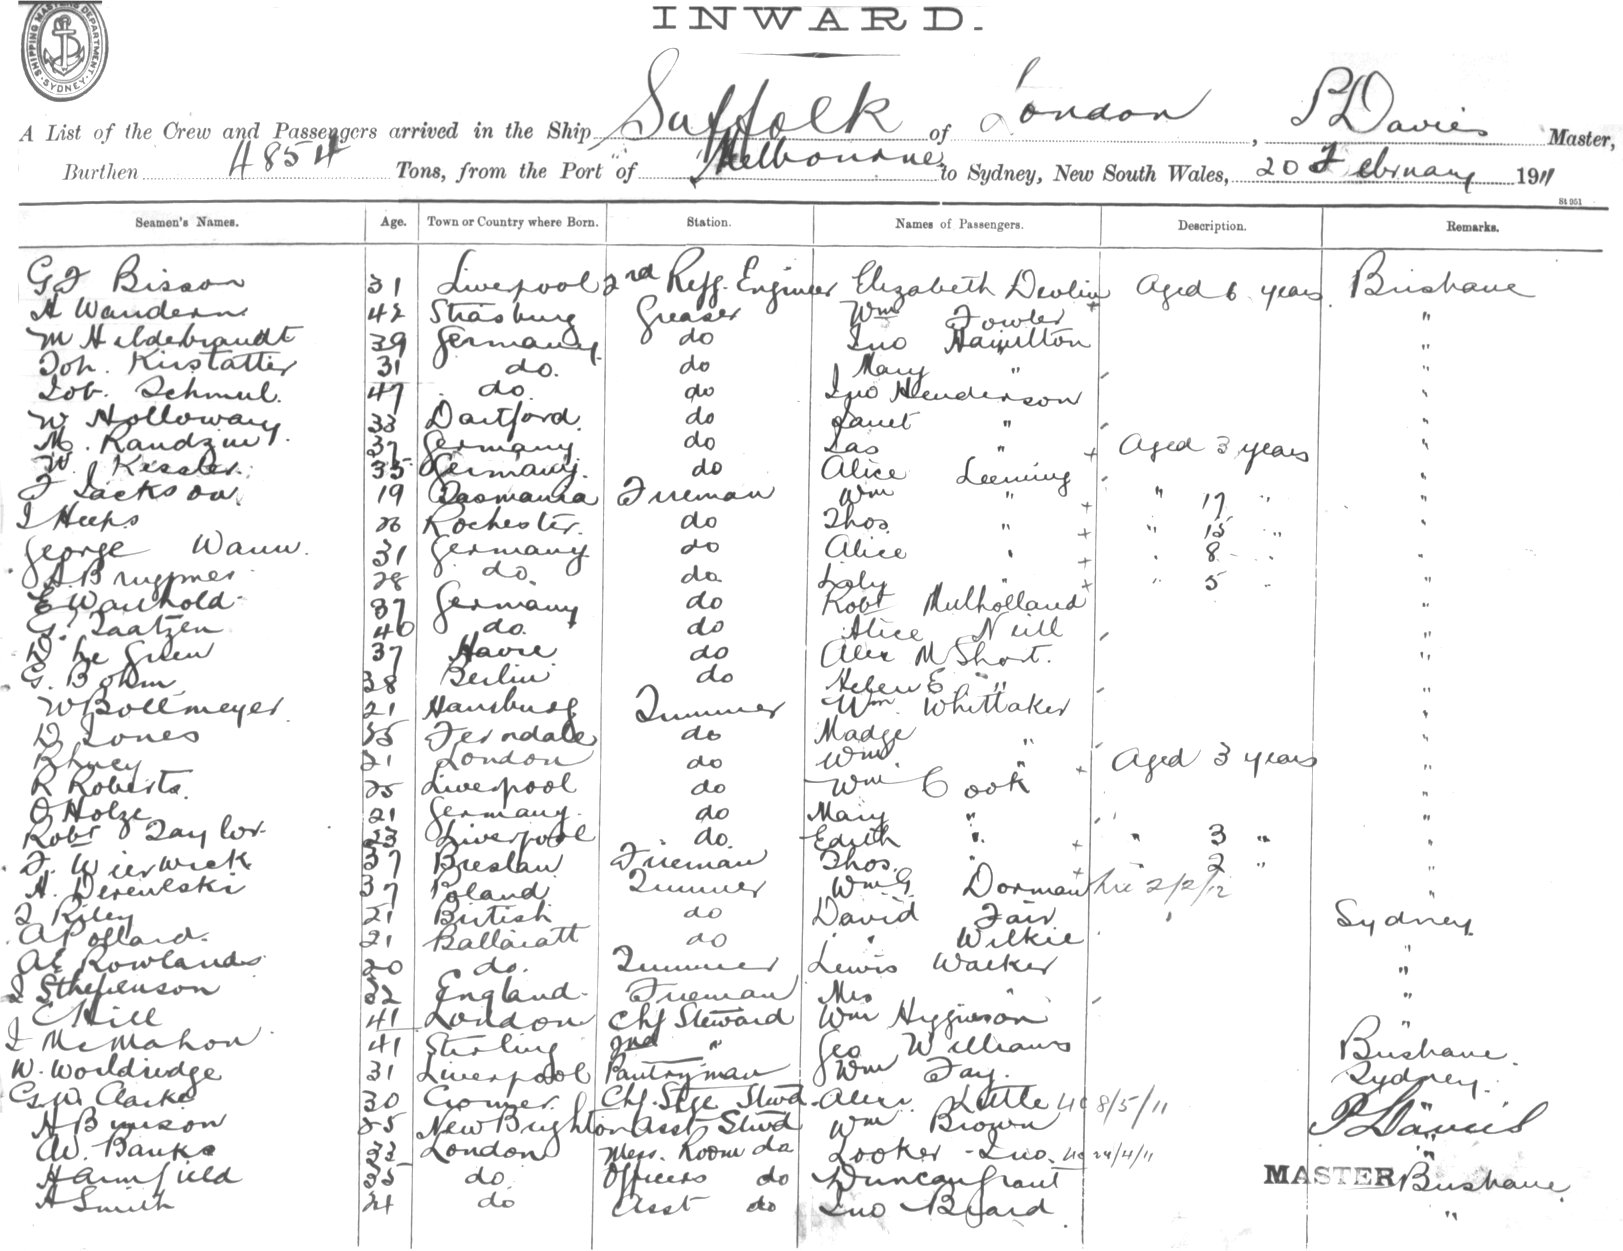 SHIPPING MASTERS DEPARTMENT. SYDNEY.
INWARD.
A List of the Crew and Passengers arrived in the Ship Suffolk of London, P Davies Master,
Burthen 4854 Tons, from the Port of Melbourne to Sydney, New South Wales, 20 February 1911
St 951
Seamen's Names. Age. Town or Country where Born. Station. Names of Passengers. Description. Remarks.
G F Bisson 31 Liverpool 2nd Refg. Engineer Elizabeth Devlin + Aged 6 years Brisbane
A Wandern 42 Strasburg Greaser Wm Fowler "
M Hildebrandt 39 Germany do Jno Hamilton "
Joh. Kirstatter 31 do. do Mary " "
Job. Schmul. 47 do do Jno Henderson "
W Holloway 33 Dartford do Janet " "
M. Randzui 37 Germany do Jas " + Aged 3 years "
W. Kessler. 35 Germany. do Alice Leeming "
F Jackson 19 Tasmania Fireman Wm " + " 17 " "
J Heeps 26 Rochester. do Thos " + " 15 " "
George Wann. 31 Germany do Alice " + " 8 " "
A Brugmer 28 do. do. Loly " + " 5 " "
E Warhold 37 Germany do Robt Mulholland "
G. Taatzen 40 do. do Alice Neill "
D. Le Guen 37 Havre do Alex M Short. "
G. Bohm 38 Berlin do Helen E " "
W Bollmeyer 21 Hamburg Trimmer Wm Whittaker "
D Jones 25 Ferndale do Madge " "
21 London do Wm " + Aged 3 years "
R Roberts. 25 Liverpool do Wm Cook "
O Holze 21 Germany. do Mary " "
Robt Taylor. 23 Liverpool do. Edith " + " 3 " "
F. Wierwick 37 Breslau Fireman Thos. " + 2 " "
A. Dereweski 37 Poland Trimmer Wm G Dorman 2/2/12 "
J Riley 21 British do David Fair Sydney
A Pollard. 21 Ballaratt do " Wilkie "
AE Rowlands 20 do. Trimmer Lewis Walker "
J Sthepenson 22 England. Fireman Mrs " "
C Hill 41 London Chf Steward Wm Higginson "
J McMahon 41 Stirling 2nd " Geo Williams Brisbane.
W. Worldridge 31 Liverpool Pantryman Wm Fay. Sydney.
G. W. Clarke 30 Cromer. Chf. Stge Stwd. Alex. Little 8/5/11
H Bunson 25 New Brighton Asst Stwd Wm Brown P Davies
W. Banks 33 London Mess. Room do Looker - Jno. 24/4/11 "
H Armfield 35 do. Officers do Duncan Grant MASTER Brisbane
A Smith 24 do Asst do Jno Beard "